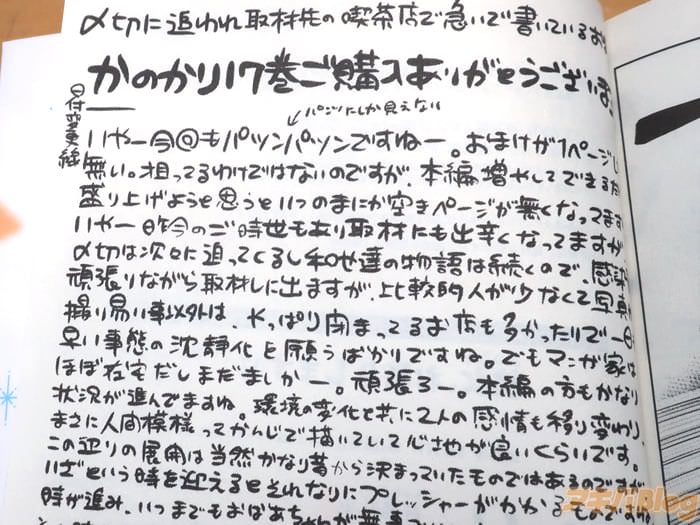 〆切に追われ取材先の喫茶店で急いで書いている
かのかり17巻ご購入ありがとうございま
←パンツにしか見えない
日付変更線
いやー今回もパッツンパッツンですねー。おまけが1ページし
無い。狙ってるわけではないのですが、本編増やしてできるだ
盛り上げようと思うといつのまにか空きページが無くなってます
いやー昨今のご時世もあり取材にも出辛くなってますが
〆切は次々に迫ってくるし和也達の物語は続くので、感染
頑張りながら取材しに出ますが、比較的人が少なくて写真
撮り易い事以外は、やっぱり閉まってるお店も多かったりで一日
早い事態の沈静化を願うばかりですね。でもマンガ家は
ほぼ在宅だしまだましかー。頑張ろー。本編の方もかなり
状況が進んでますね。環境の変化と共に2人の感情も移り変わり、
まさに人間模様ってかんじで描いていて心地が良いくらいです。
この辺りの展開は当然かなり昔から決まっていたものではあるのですが
いざという時を迎えるとそれなりにプレッシャーがかかるものですね
時が進み、いつまでもおばあち
アキバBlog